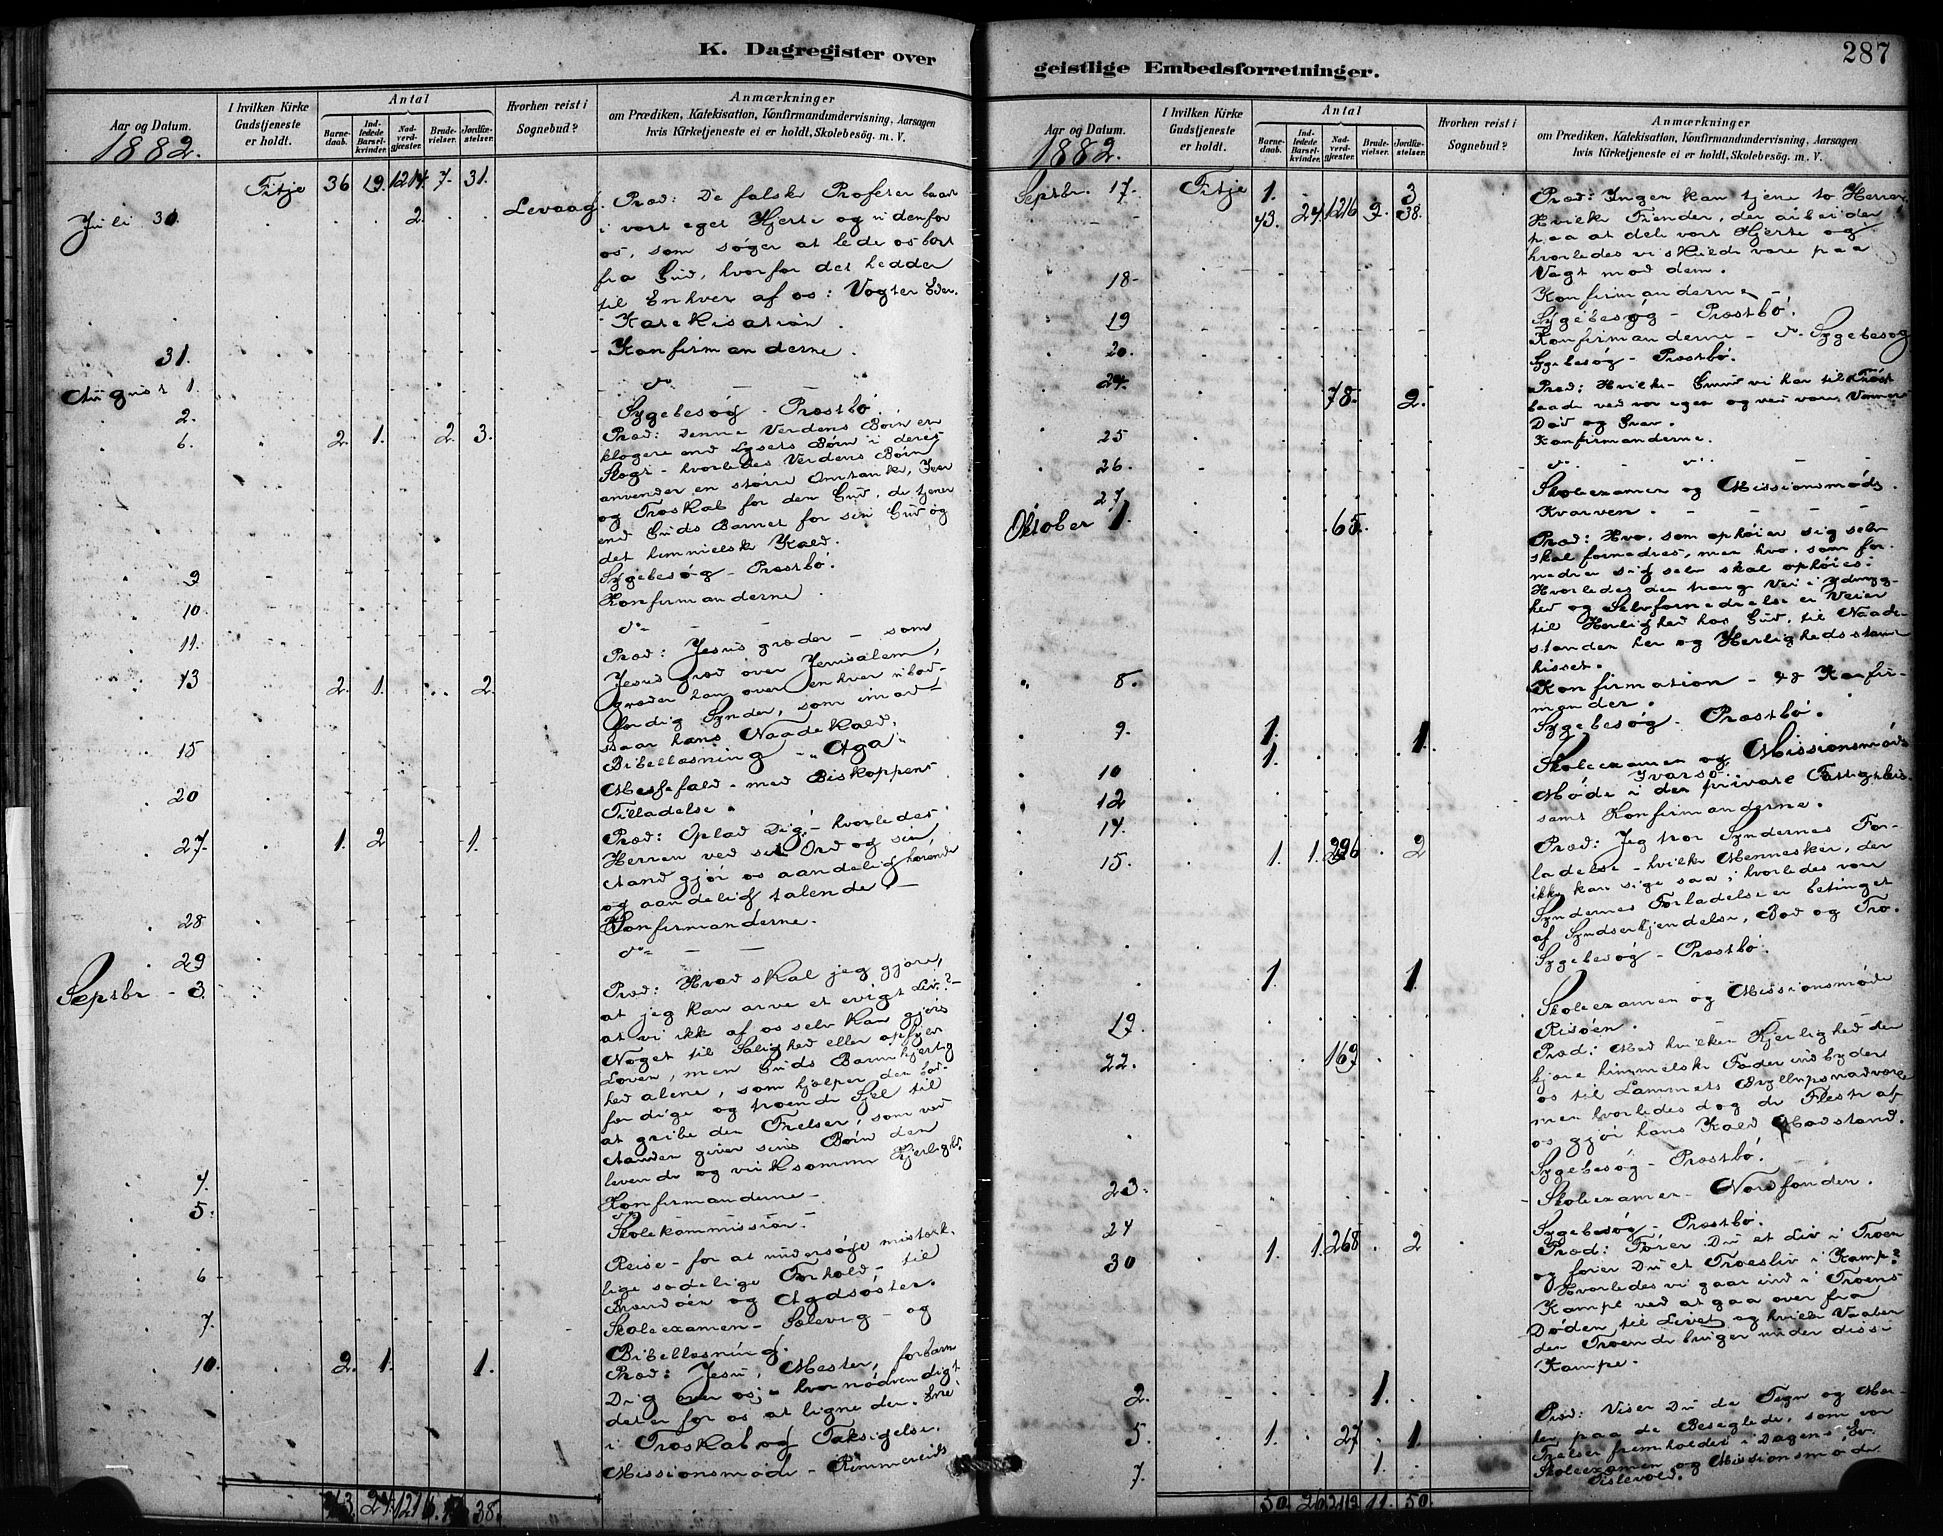 K. Dagregister over
Aar og Datum.
I hvilken Kirke Gudstjeneste er holdt.
Antal
Barnedaab.
Indledede Barselkvinder.
Nadverdgjæster.
Brudevielser.
Jordfæstelser.
Hvorhen reist i Sognebud?
Anmærkninger
om Prædiken, Katekisation, Konfirmandundervisning, Aarsagen
hvis Kirketjeneste ei er holdt, Skolebesøg. m. V.
1882.
Fitje 36 19. 1214. 7. 31.
Juli 30. 2. Levaag. Præd: De falske Profeter baade
i vort eget Hjerte og udenfor
os, som søger at lede os bort
fra Gud, hvorfor det hedder
til Enhver af os: Vogter Eder.
Katekisation.
31. Konfirmanderne.
August 1. do
2. Sygebesøg - Præstbø.
6. 2. 1. 2. 3. Præd: Denne Verdens Børn ere
klogere end Lysets Børn i deres
Slags - hvorledes Verdens Børn
anvender en større Omtanke, Iver
og Troskab for den Gud, de tjener
end Guds Barnet for sin Gud og
det himmelske Kald.
9 Sygebesøg - Præstbø.
10. Konfirmanderne.
11. do
13 2. 1. 2. Præd: Jesus græder - som
Jesus græd over Jerusalem,
græder han over enhver ubod-
færdig Synder, som imod-
staar hans Naadekald.
15 Bibellæsning - Aga
20 Messefald - med Biskoppens
Tilladelse.
27. 1. 2 1. Præd: Oplad Dig - hvorledes
Herren ved sit Ord og sin
Aand gjør os aandelig hørende
og aandelig talende. -
28 Konfirmanderne.
29 do
Septbr - 3. Præd: Hvad skal jeg gjøre,
at jeg kan arve et evigt Liv? -
at vi ikke af os selv kan gjøre
Noget til Salighed eller opfylde
Loven, men Guds Barmhjertig
hed alene, som hjælper den bod-
færdige og troende Sjæl til
at gribe den Frelser, som ved
Aanden giver sine Børn den
levende og virksomme Kjerlighed.
4. Konfirmanderne -
5. do
Skolekommission -
6 Reise - for at undersøge mistænk-
lige sædelige Forhold - til
Brandøen og Agdsøster.
7. Skoleexamen - Sælevig - og
Bibellæsning.
10. 2. 1. 1. Præd: Jesu, Mester, forbarm
Dig over os; - hvor nødvendigt
det er for os at ligne den
i Troskab og Taksigelse.
Missionsmøde - Rimmereid
43 24 1216. 9 38.
geistlige Embedsforretninger.
287
Aar og Datum.
I hvilken Kirke Gudstjeneste er holdt.
Antal
Barnedaab.
Indledede Barselkvinder.
Nadverdgjæster.
Brudevielser.
Jordfæstelser.
Hvorhen reist i Sognebud?
Anmærkninger
om Prædiken, Katekisation, Konfirmandundervisning, Aarsagen
hvis Kirketjeneste ei er holdt, Skolebesøg. m. V.
1882.
Septbr. 17. Fitje 1. 3 Præd: Ingen kan tjene to Herrer,
43. 24. 1216 9. 38. Hvilke Fiender, der arbeider
paa at dele vort Hjerte og
hvorledes vi skulde være paa
Vagt mod dem.
18 Konfirmanderne -
Sygebesøg - Præstbø.
19 Konfirmanderne - Sygebesøg
20. Sygebesøg - Præstbø.
24. 78. 2. Præd: Hvilken Grund vi har til Trøst
baade ved vor egen og ved vore Venners
Død og Grav.
25 Konfirmanderne.
26. do
27 Skoleexamen og Missionsmøde.
Kvarven.
Oktober 1. 65. Præd: Hvo, som ophøier sig selv
skal fornedres, men hvo, som for-
nedrer sig selv skal ophøies.
Hvorledes den trange Vei i Ydmyg-
hed og Selvfornedrelse er Veien
til Herlighed hos Gud, til Naade-
standen her og Herlighedsstanden
hisset.
8. Konfirmation - 48 Konfir-
mander.
9. 1. 1. Sygebesøg - Præstbø.
10 1. Skoleexamen og Missionsmøde
Ivarsø.
12 Møde i den private Fattigkas.
14. samt Konfirmanderne.
15. 1. 1. 296 2 Præd: Jeg tror Syndernes For-
ladelse - hvilke Mennesker, der
ikke kan sige saa; hvorledes vor
Syndernes Forladelse er betinget
af Syndserkjendelse, Bod og Tro.
Sygebesøg - Præstbø.
1. 1. Skoleexamen og Missionsmøde
19. Risøen.
22. 169 Præd: Med hvilken Kjerlighed den
kjære himmelske Fader indbyder
os til Lammets Bryllupsnadvere
men hvorledes dog de Fleste af
os gjør hans Kald Modstand.
Sygebesøg - Præstbø.
23. Skoleexamen - Nordfonden.
24 Sygebesøg - Præstbø.
30 1. 1. 268 2 Præd: Fører Du et Liv i Troen
og fører Du et Troesliv i Kamp?
Hvorledes vi gaar ind i Troens
Kampe ved at gaa over fra
Døden til Livet og hvilke Vaaben
den Troende bruger under disse
Kampe.
2. 1.
5. 1. 27 1. Præd: Viser Du de Tegn og Mær-
ker paa de Beseglede, som vor
Frelser fremholder i Dagens Ev.
7. 1. Skoleexamen og Missionsmøde
Tislevold.
50. 26 2119 11. 50.